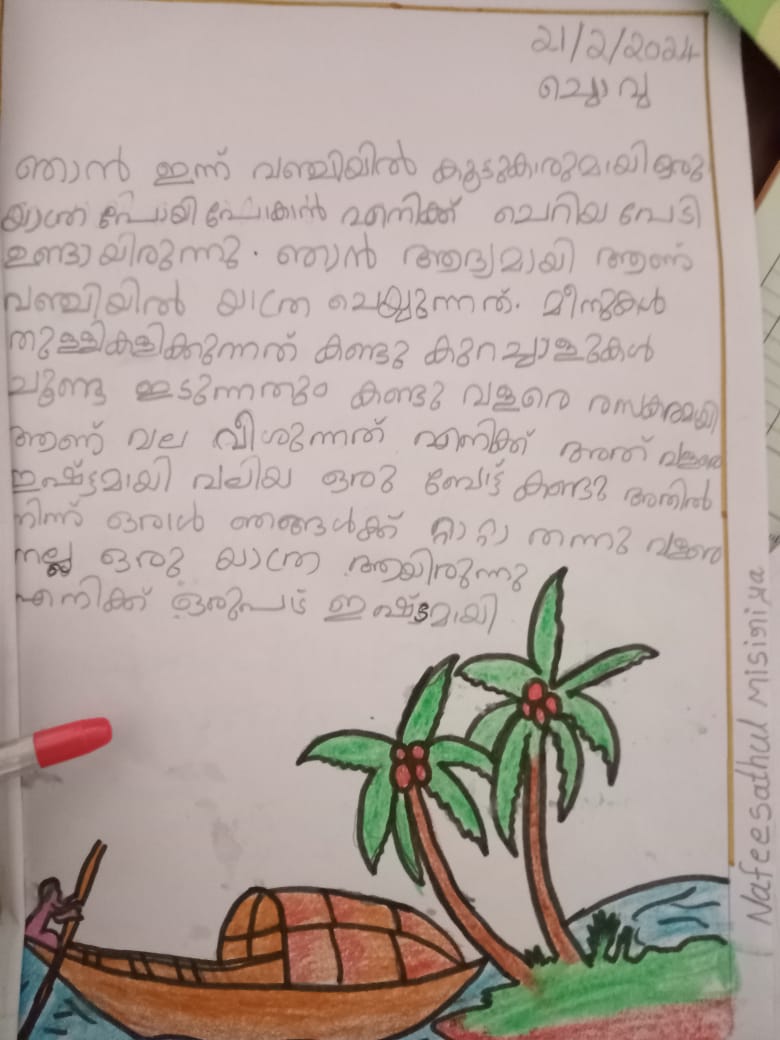 21/2/2024
ചൊവ്വ
ഞാൻ ഇന്ന് വഞ്ചിയിൽ കൂട്ടുകാരുമായി ഒരു
യാത്ര പോയി പോകാൻ എനിക്ക് ചെറിയ പേടി
ഉണ്ടായിരുന്നു. ഞാൻ ആദ്യമായി ആണ്
വഞ്ചിയിൽ യാത്ര ചെയ്യുന്നത്. മീനുകൾ
തുള്ളികളിക്കുന്നത് കണ്ടു കുറച്ചാളുകൾ
ചൂണ്ട ഇടുന്നതും കണ്ടു വളരെ രസകരമായി
ആണ് വല വീശുന്നത് എനിക്ക് അത് വളരെ
ഇഷ്ട്ടമായി വലിയ ഒരു ബോട്ട് കണ്ടു അതിൽ
നിന്ന് ഒരാൾ ഞങ്ങൾക്ക് റ്റാറ്റാ തന്നു വളരെ
നല്ല ഒരു യാത്ര ആയിരുന്നു
എനിക്ക് ഒരുപാട് ഇഷ്ട്ടമായി
Nafeesathul Misiriya